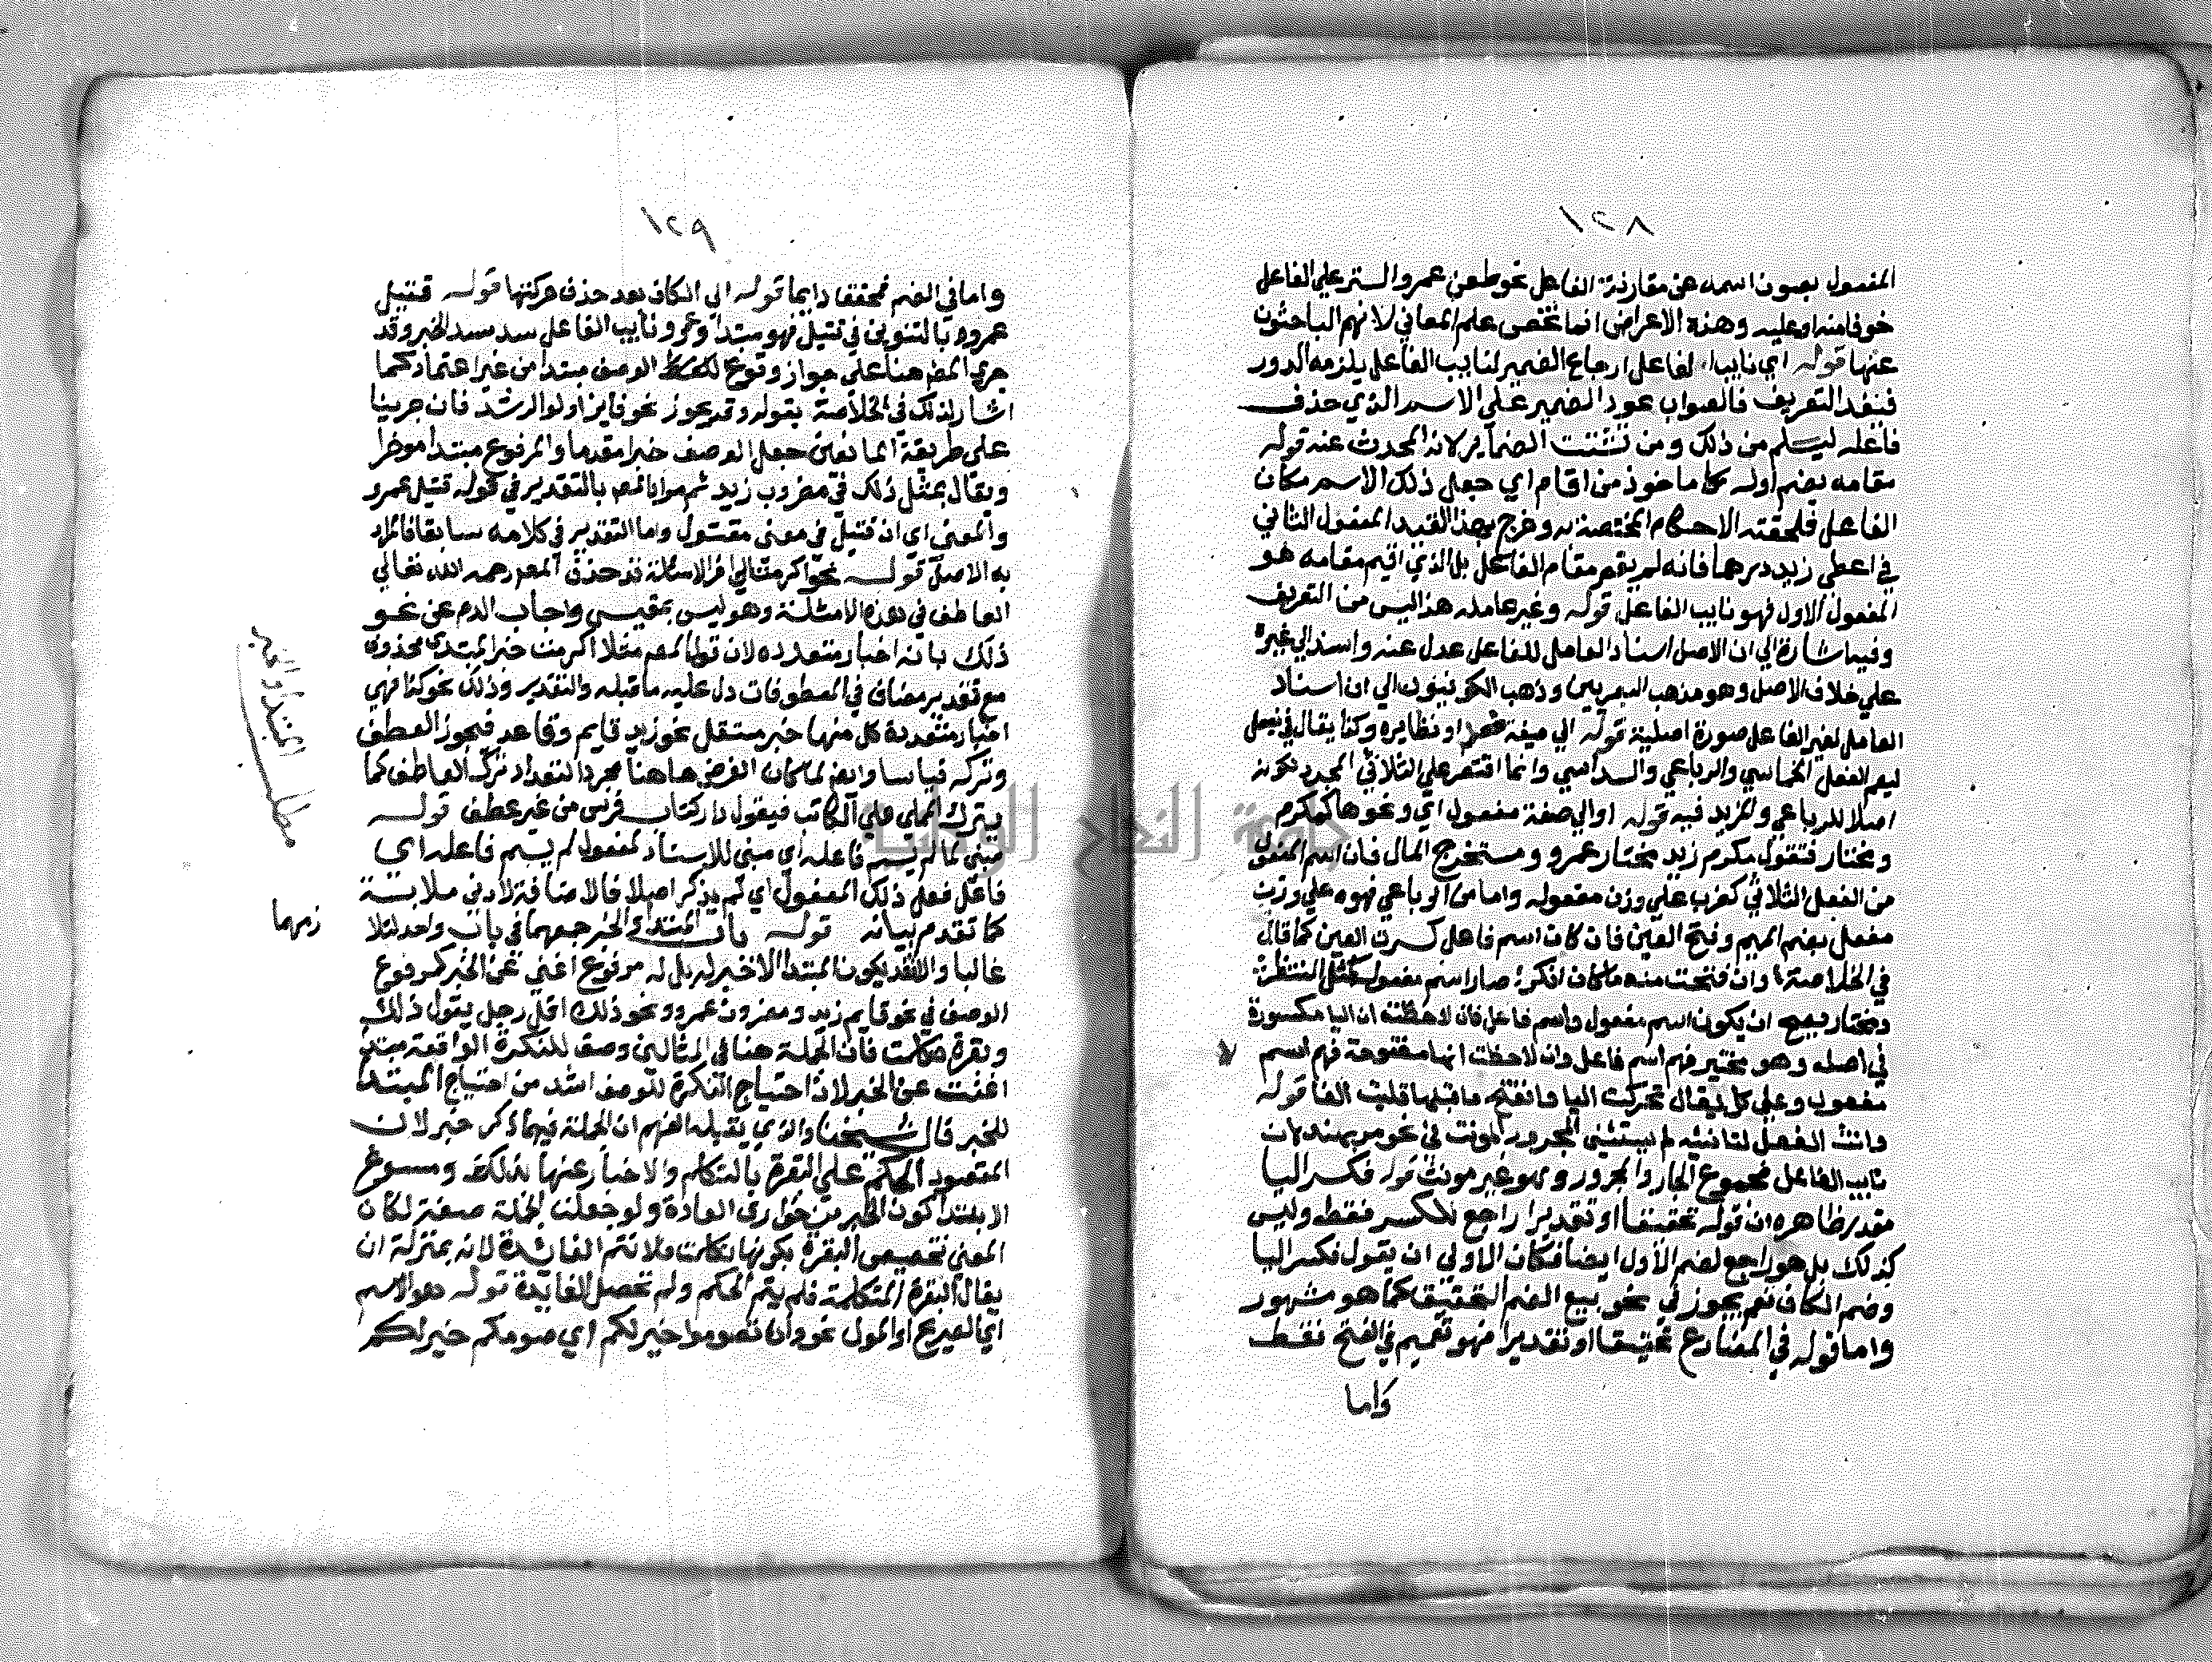 ١٢٨
المفعول بصون اسمه عن مقارنة الفاعل نحو طعن عمر والستر علي الفاعل
خوفا منه او عليه وهذه الاعراض انما تخص علم المعاني لانهم الباحثون
عنها قوله اي نايب الفاعل ارجاع الضمير لنايب الفاعل يلزمه الدور
فيفسد التعريف فالصواب عود الضمير علي الاسم الذي حذف
فاعله ليسلم من ذلك ومن تشتت الضماير لانه المحدث عنه قوله
مقامه بضم اوله ماخوذ من اقام اي جعل ذلك الاسم مكان
الفاعل فلحقته الاحكام المختصة به وخرج بهذا القيد المفعول الثاني
في اعطي زيد درهما فانه لم يقم مقام الفاعل بل الذي اقيم مقامه هو
المفعول الاول فهو نايب الفاعل قوله وغير عامله هذا ليس من التعريف
وفيه اشارة الي ان الاصل اسناد العامل للفاعل عدل عنه واسند الي غيره
علي خلاف الاصل وهو مذهب البصريين وذهب الكوفيون الي ان اسناد
العامل لغير الفاعل صورة اصلية قوله الي صيغة او نظايره وكذا يقال في يفعل
ليعم الفعل الخماسي والرباعي والسداسي وانما اقتصر علي الثلاثي المجرد لكونه
اصلا للرباعي والمزيد فيه قوله او الي صفة مفعول اي ونحوها كمكرم
ومختار فتقول مكرم زيد مختار عمرو ومستخرج المال فان اسم المفعول
من الفعل الثلاثي كضرب علي وزن مفعوله واما من الرباعي فهو علي وزن
مفعل بضم الميم وفتح العين فان كان اسم فاعل كسرت العين كما قال
في الخلاصة وان فتحت منه ما كان انكسر صار اسم مفعول كمثل المنتظر
ومختار يصح ان يكون اسم مفعول واسم فاعل فان لاحظته ان اليا مكسورة
في اصله وهو مختير فهم اسم فاعل وان لاحظت انها مفتوحة فهم اسم
مفعول وعلي كل يقال تحركت اليا وانفتح ما قبلها قلبت الفا قوله
وانث الفعل لتانيثه لم يستثني المجرور المونث في نحو مر بهند لان
نايب الفاعل مجموع الجار والمجرور وهو غير مونث قوله فكسر اليا
مقدر ظاهره ان قوله تحقيقا او تقديرا راجع للكسر فقط وليس
كذلك بل هو راجع لضم الاول ايضا فكان الاولي ان يقول فكسر اليا
وضم الكاف نعم يجوز في نحو بيع الضم التحقيق كما هو مشهور
واما قوله في المضارع تحقيقا او تقديرا فهو تعميم في الفتح فقط
واما
١٢٩
واما في الضم فمحققا دايما قوله الي الكاف بعد حذف حركتها قوله قتيل
عمرو بالتنوين في قتيل فهو مبتدا وعمرو نايب الفاعل سد مسد الخبر وقد
جري المص هنا علي جواز وقوع الوصف مبتدا من غير اعتماد كما
اشار لذلك في الخلاصة بقوله وقد يجوز نحو فايز اولوا الرشد فان جرينا
علي طريقة المانعين جعل الوصف خبرا مقدما والمرفوع مبتدا موخرا
ويقال بمثل ذلك في مضروب زيد بالتقدير في قوله قتيل عمرو
والمعني اي ان قتيل في معني مقتول واما التقدير في كلامه سابقا فالمراد
به الاصل قوله نحو اكرمت الي اخر الامثلة قد حذف المص رحمه الله تعالي
العاطف في هذه الامثلة وهو ليس بمقيس واجاب الدم عن نحو
ذلك بانه اخبار متعدده لان قول المص مثلا اكرمت خبر المبتدي محذوف
مع تقدير مضاف في المعطوفات دل عليه ما قبله والتقدير وذلك نحو كذا فهي
اخبار متعددة كل منها خبر مستقل نحو زيد قايم وقاعد فيجوز العطف
وتركه قياسا وايضا لما كان الغرض هاهنا مجرد التعداد ترك العاطف كما
يترك المملي علي الكاتب فيقول دار كتاب فرس من غير عطف قوله
مبني لما لم يسم فاعله اي مبني للاسناد لمفعول لم يسم فاعله اي
فاعل فعل ذلك المفعول اي لم يذكر اصلا فالاضافة لادني ملابسة
كما تقدم بيانه قوله باب المبتدا والخبر جمعهما في باب واحد لتلا
زمهما
غالبا والا فقد يكون المبتدا لا خبر له بل له مرفوع اغني عن الخبر كمرفوع
الوصف في نحو قايم زيد ومضروب عمرو ونحو ذلك اقل رجل يقول ذلك
وبقرة تكلمت فان الجملة هنا في المثالين وصف للنكرة الواقعة مبتدا
اغنت عن الخبر لان احتياج النكرة للوصف اشد من احتياج المبتدا
للخبر قال شيخنا والذي يقبله الفهم ان الجملة فيما ذكر خبر لان
المقصود الحكم علي البقرة بالتكلم والاخبار عنها بذلك ومسوغ
الابتدا كون الخبر من خوارق العادة ولو جعلت الجملة صفة لكان
المعني تخصيص البقرة بكونها تكلمت فلا تتم الفائدة لانه بمنزلة ان
يقال البقرة المتكلمة فلم يتم الحكم ولم تحصل الفايدة قوله هو الاسم
اي الصريح او المول نحو وان تصوموا خير لكم اي صومكم خير لكم
مطلب المبتدا والخبر
جامعة النجاح الوطنية